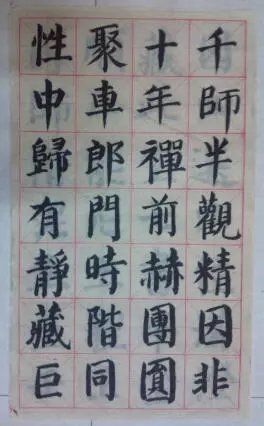 千師半觀精因非
十年禪前赫團圓
聚車郎門時階同
性中歸有靜藏巨